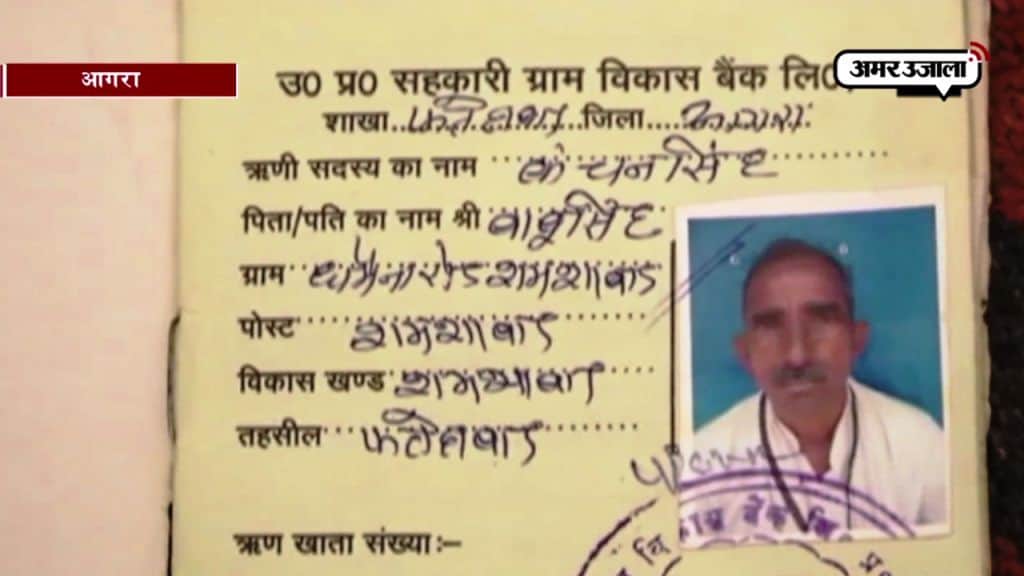 आगरा
अमर उजाला
उ0 प्र0 सहकारी ग्राम विकास बैंक लि0
शाखा..फतेहाबाद...जिला....आगरा
ऋणी सदस्य का नाम ...कंचन सिंह..........
पिता/पति का नाम श्री बाबु सिंह
ग्राम ..रोड शमशाबाद
पोस्ट.....शमशाबाद.........
विकास खण्ड..शमशाबाद......
तहसील...फतेहाबाद........
ऋण खाता संख्या:–
ग्राम विकास बैंक लि